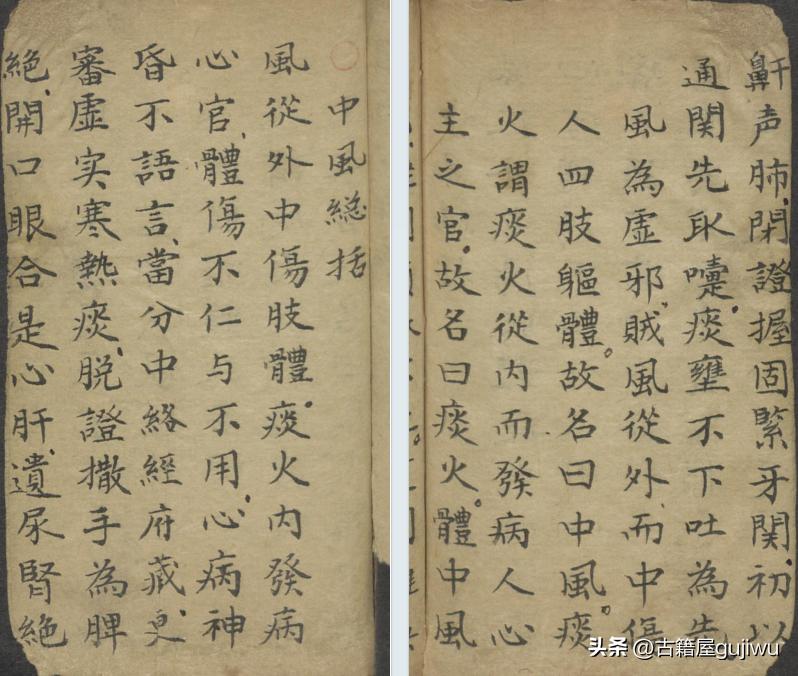 中風総括
風從外中傷肢體。痰火内發病
心官、體傷不仁与不用、心病神
昏不語言、當分中絡經府藏、更
審虚实寒熱痰、脱證撒手為脾
絶、開口眼合是心肝、遺尿腎絶
鼾声肺、閉證握固緊牙関、初以
通関先取嚏。痰壅不下吐為先
風為虚邪、賊風從外而中傷
人四肢軀體。故名曰中風。痰
火謂痰火從内而發病人心
主之官。故名曰痰火。體中風
头条 @古籍屋gujiwu